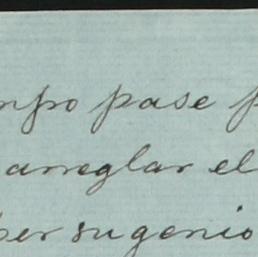 mpo pase p
arreglar el
ber su genio